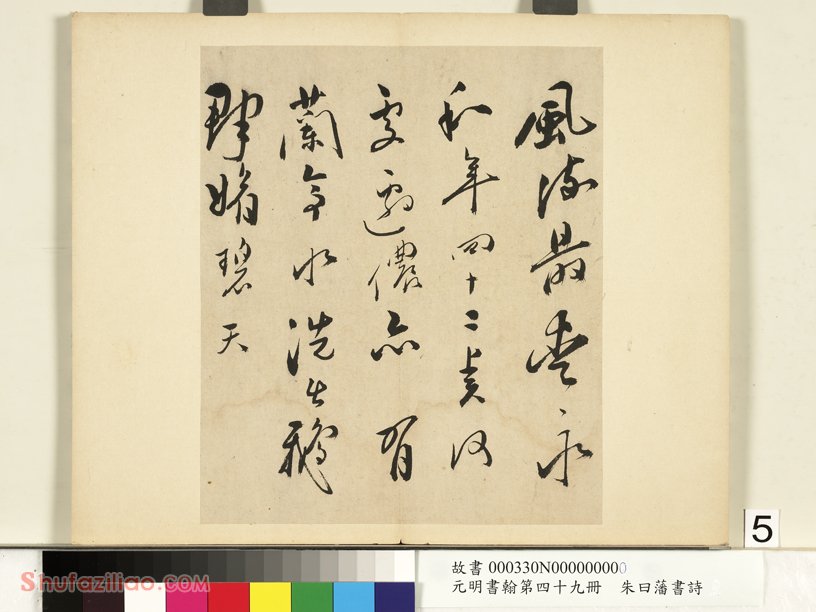 風流最愛永
和年四十二賢何
處邊儂亦有
蘭亭水洗出鵝
群媚碧天
5
故書 000330N000000000
元明書翰第四十九冊 朱曰藩書詩
Shufaziliao.com